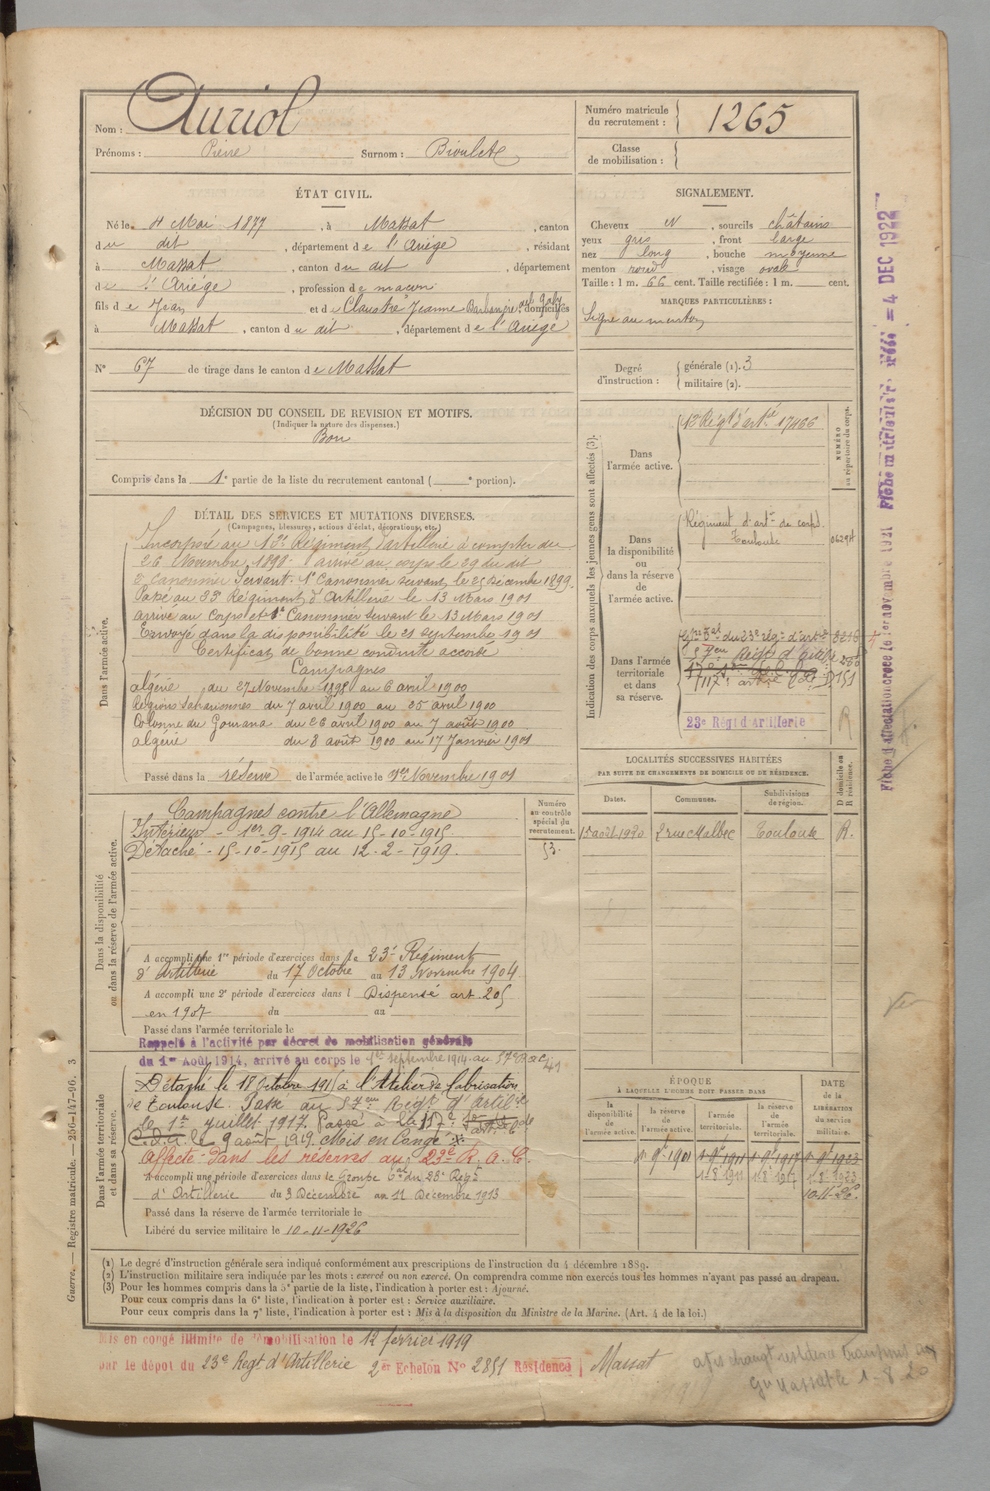 Nom : Auriol
Prénoms : Pierre Surnom : Bioulete
Numéro matricule du recrutement : 1265
Classe de mobilisation :
ÉTAT CIVIL.
Né le 4 Mai 1877, à Massat, canton
du dit, département de l'Ariège, résidant
à Massat, canton du dit, département
de l'Ariège, profession de maçon
fils de Jean et de Claustre Jeanne domiciliés
à Massat, canton du dit, département de l'Ariège
N° 67 de tirage dans le canton de Massat
SIGNALEMENT.
Cheveux N, sourcils châtains
yeux gris, front large
nez long, bouche moyenne
menton rond, visage ovale
Taille : 1 m. 66 cent. Taille rectifiée : 1 m. cent.
MARQUES PARTICULIÈRES :
Signe au menton
Degré d'instruction : générale (1). 3
militaire (2).
DÉCISION DU CONSEIL DE REVISION ET MOTIFS.
(Indiquer la nature des dispenses.)
Bon
Compris dans la 1e partie de la liste du recrutement cantonal ( e portion).
DÉTAIL DES SERVICES ET MUTATIONS DIVERSES.
(Campagnes, blessures, actions d'éclat, décorations, etc.)
Dans l'armée active.
Incorporé au 13e Régiment d'artillerie à compter du
26 Novembre 1898. arrivé au corps le 29 du dit
2e Canonnier Servant. 1er Canonnier servant le 25 Décembre 1899.
Passé au 23e Régiment d'Artillerie le 13 Mars 1901
arrivé au Corps et 1er Canonnier servant le 13 Mars 1901
Envoyé dans la disponibilité le 21 septembre 1901
Certificat de bonne conduite accordé
Campagnes
algérie du 27 Novembre 1898 au 6 avril 1900
Régions Sahariennes du 7 avril 1900 au 25 avril 1900
Colonne du Gourara du 26 avril 1900 au 7 août 1900
algérie du 8 août 1900 au 17 Janvier 1901
Passé dans la réserve de l'armée active le 1er Novembre 1901
Indication des corps auxquels les jeunes gens sont affectés (3).
NUMÉRO au répertoire du corps.
Dans l'armée active.
13 Régt d'artie 17466
Dans la disponibilité ou dans la réserve de l'armée active.
Régiment d'artie de corps.
Toulouse
Dans l'armée territoriale et dans sa réserve.
du 23e régt d'artie
57em Regt d'Artie
117e
23e Régt d'Artillerie
R
LOCALITÉS SUCCESSIVES HABITÉES
PAR SUITE DE CHANGEMENTS DE DOMICILE OU DE RÉSIDENCE.
D domicile ou R résidence.
Dates. Communes. Subdivisions de région.
1er août 1920 2 rue Malbec Toulouse R.
Numéro au contrôle spécial du recrutement.
53.
Dans la disponibilité ou dans la réserve de l'armée active.
Campagnes contre l'Allemagne
Intérieur - 1er-9-1914 au 15-10-1915
Détaché - 15-10-1915 au 12-2-1919.
A accompli une 1re période d'exercices dans le 23e Régiment
d'Artillerie du 17 Octobre au 13 Novembre 1904
A accompli une 2e période d'exercices dans l Dispensé art 205
en 1907 du au
Passé dans l'armée territoriale le
Rappelé à l'activité par décret de mobilisation générale
du 1er Août 1914, arrivé au corps le 1er septembre 1914 au 57e
Dans l'armée territoriale et dans sa réserve.
Détaché le 18 Octobre 1915 à l'Atelier de fabrication
de Toulouse. Passé au 57em Regt d'Artilie
le 1er juillet 1917. Passé à la 117e
le 9 août 1919. Mis en congé
Affecté dans les réserves au 23e R. A. C.
A accompli une période d'exercices dans le Groupe du 23e Régt
d'Artillerie du 3 Décembre au 11 Décembre 1913
Passé dans la réserve de l'armée territoriale le
Libéré du service militaire le 10-11-1926
ÉPOQUE
À LAQUELLE L'HOMME DOIT PASSER DANS
la disponibilité de l'armée active. la réserve de l'armée active. l'armée territoriale. la réserve de l'armée territoriale.
DATE DE LA LIBÉRATION du service militaire.
1-9bre 1901 1-9bre 1911 1-9bre 1917 1-9bre 1923
1-8-1911 1-8-1917 1-8-1923
10-11-26.
(1) Le degré d'instruction générale sera indiqué conformément aux prescriptions de l'instruction du 4 décembre 1889.
(2) L'instruction militaire sera indiquée par les mots : exercé ou non exercé. On comprendra comme non exercés tous les hommes n'ayant pas passé au drapeau.
(3) Pour les hommes compris dans la 5e partie de la liste, l'indication à porter est : Ajourné.
Pour ceux compris dans la 6e liste, l'indication à porter est : Service auxiliaire.
Pour ceux compris dans la 7e liste, l'indication à porter est : Mis à la disposition du Ministre de la Marine. (Art. 4 de la loi.)
Mis en congé illimité de démobilisation le 12 février 1919
par le dépôt du 23e Regt d'Artillerie 2er Echelon N° 2851 Résidence Massat
Guerre. — Registre matricule. — 256-147-96. 3
= 4 DEC 1922